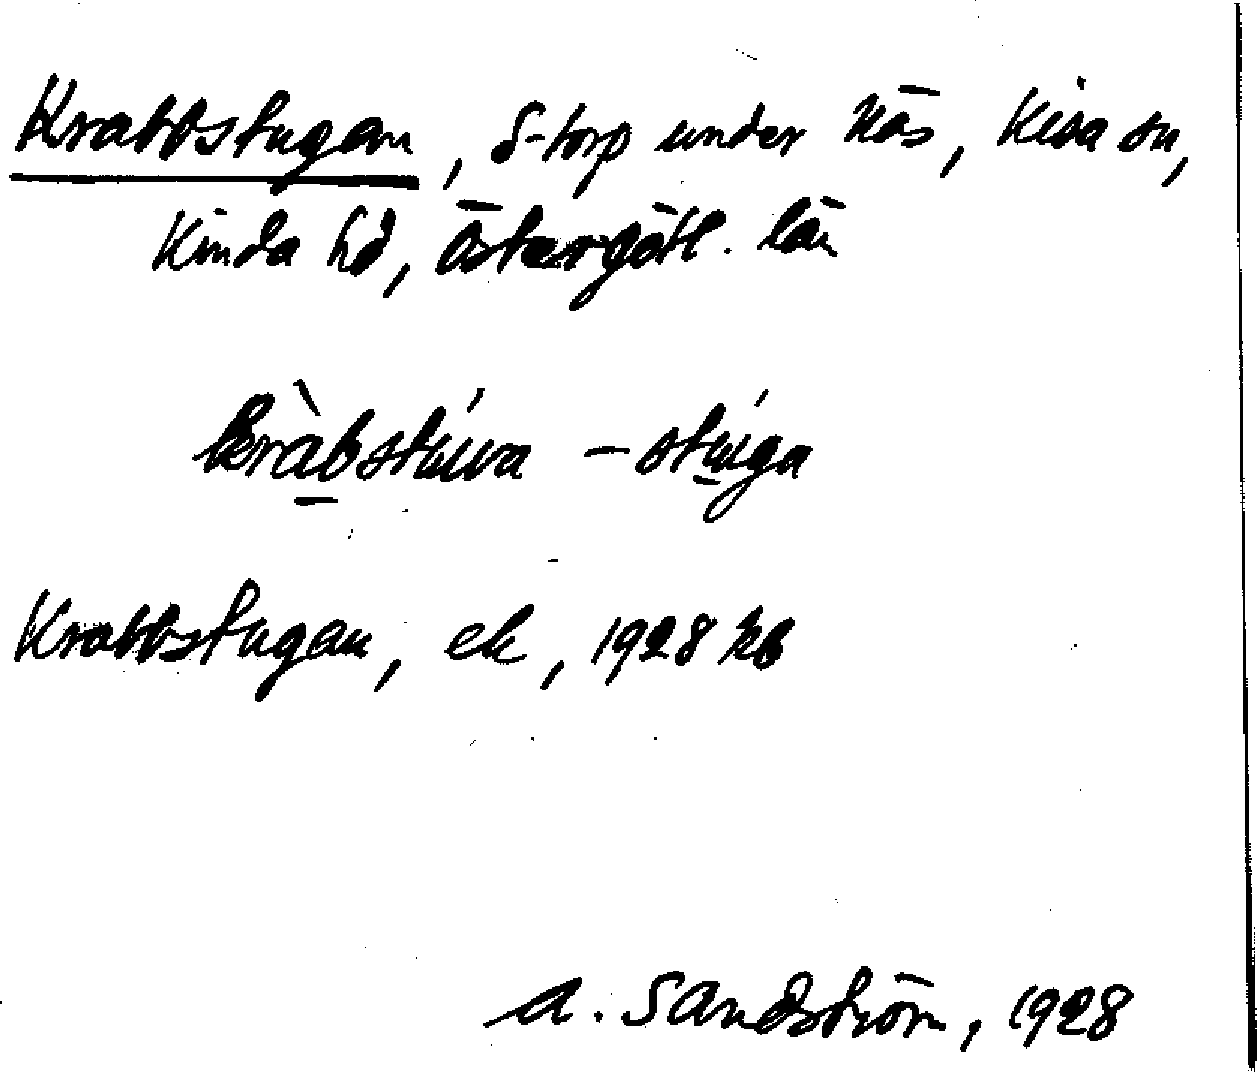 Krabbstugan, s-torp under Näs, Kisa sn,
Kinda hd, Östergötl. län
kràbstúwa – stúga
Krabbstugan, ek, 1928 kb
A. Sandström, 1928